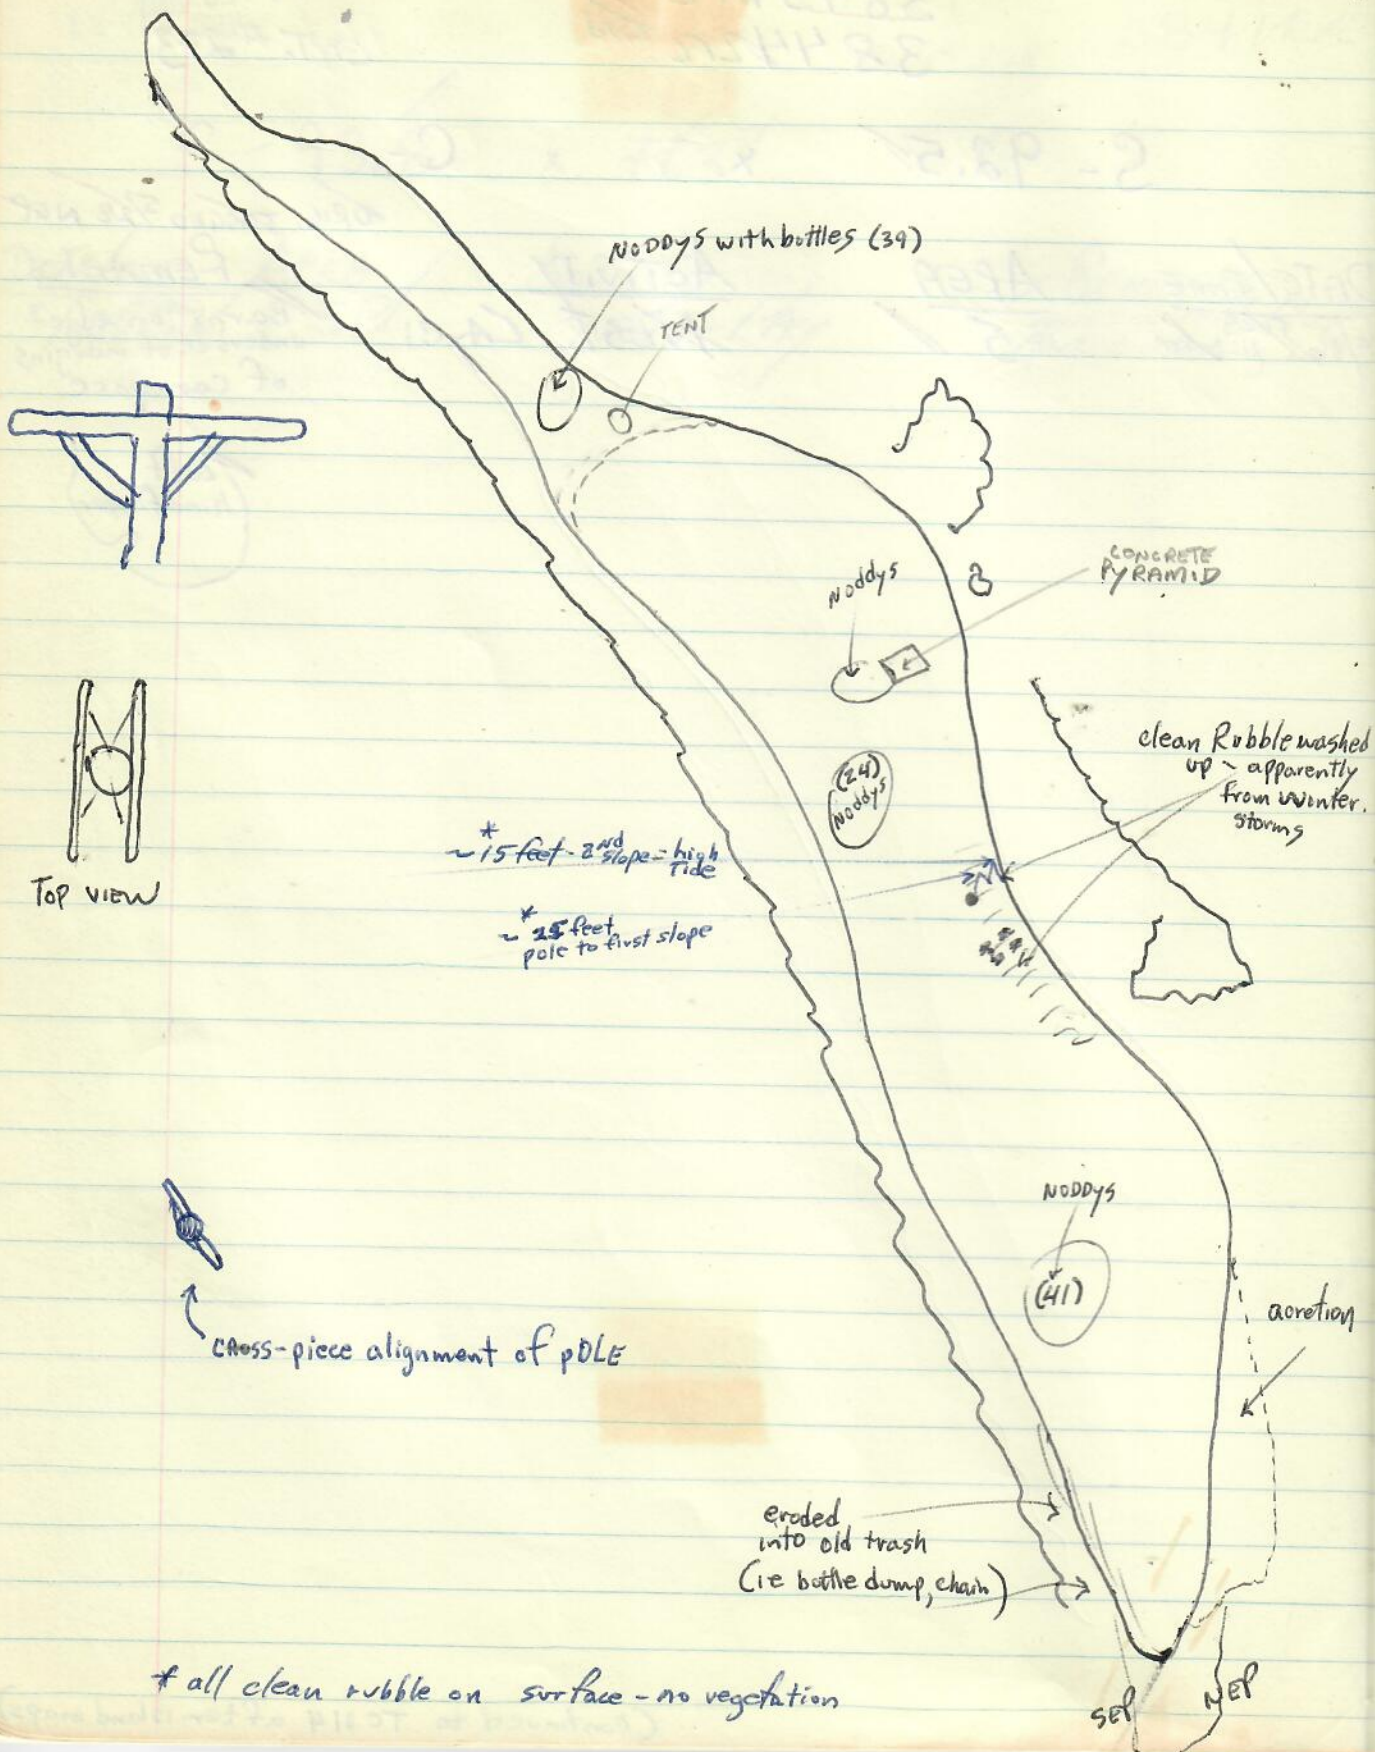 NODDYS with bottles (39)
TENT
CONCRETE
PYRAMID
Noddys
(24)
Noddys
clean Rubble washed
up ~ apparently
from Winter.
storms
*
~15 feet - 2nd slope = high
Tide
*
~ 25 feet
pole to first slope
TOP VIEW
NODDYS
(41)
acretion
CROSS-piece alignment of POLE
eroded
into old trash
(ie bottle dump, chain)
* all clean rubble on surface - no vegetation
SEP
NEP